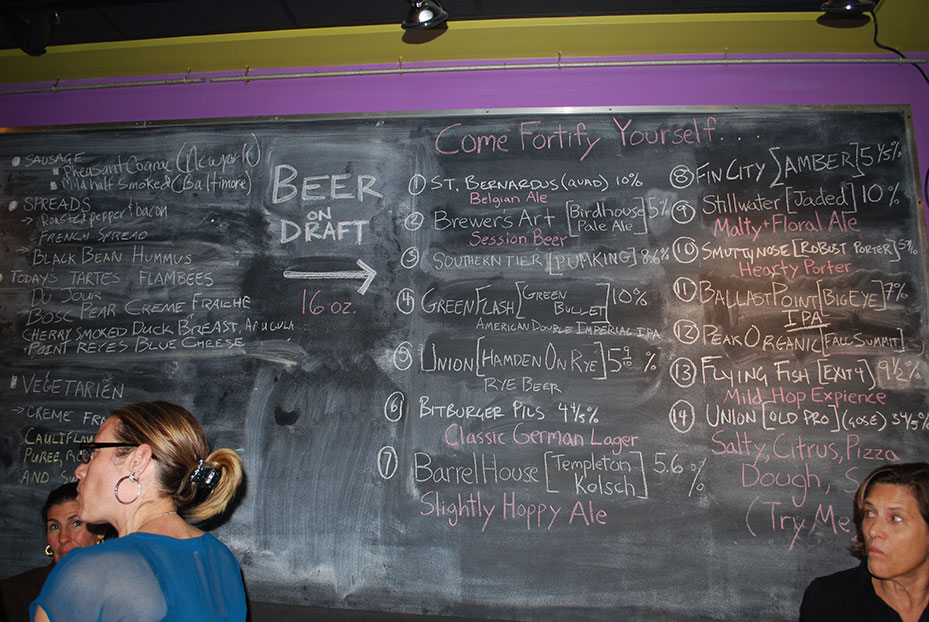 SAUSAGE
Pheasant Cognac (New York)
Mild Half Smoked (Baltimore)
SPREADS
→ Roasted pepper + bacon
FRENCH SPREAD
→ BLACK BEAN HUMMUS
TODAY'S TARTES FLAMBEES
DU JOUR
BOSC PEAR CREME FRAICHE
CHERRY SMOKED DUCK BREAST, ARUGULA
+ POINT REYES BLUE CHEESE
VEGETARIEN
→ CREME
CAULIFLOW
PUREE,
AND
BEER
ON
DRAFT
→
16 oz.
Come Fortify Yourself....
① ST. BERNARDUS (QUAD) 10%
Belgian Ale
② Brewer's Art [Birdhouse Pale Ale] 5%
Session Beer
③ SOUTHERN TIER [PUMKING] 8.6%
④ GREEN FLASH [GREEN BULLET] 10%
AMERICAN DOUBLE IMPERIAL IPA
⑤ UNION [HAMDEN ON RYE] 5 9/10 %
RYE BEER
⑥ BITBURGER PILS 4 4/5 %
Classic German Lager
⑦ Barrel House [Templeton Kolsch] 5.6 %
Slightly Hoppy Ale
⑧ FIN CITY [AMBER] 5 4/5%
⑨ Stillwater [Jaded] 10%
Malty + Floral Ale
⑩ SMUTTYNOSE [ROBUST PORTER] 5%
Hearty Porter
⑪ BALLAST POINT [BIG EYE] 7%
IPA
⑫ PEAK ORGANIC [FALL SUMMIT]
⑬ FLYING FISH [EXIT 4] 9 1/2 %
Mild Hop Expience
⑭ UNION [OLD PRO] (GOSE) 3 4/5%
Salty, Citrus, Pizza
Dough, S
(Try Me